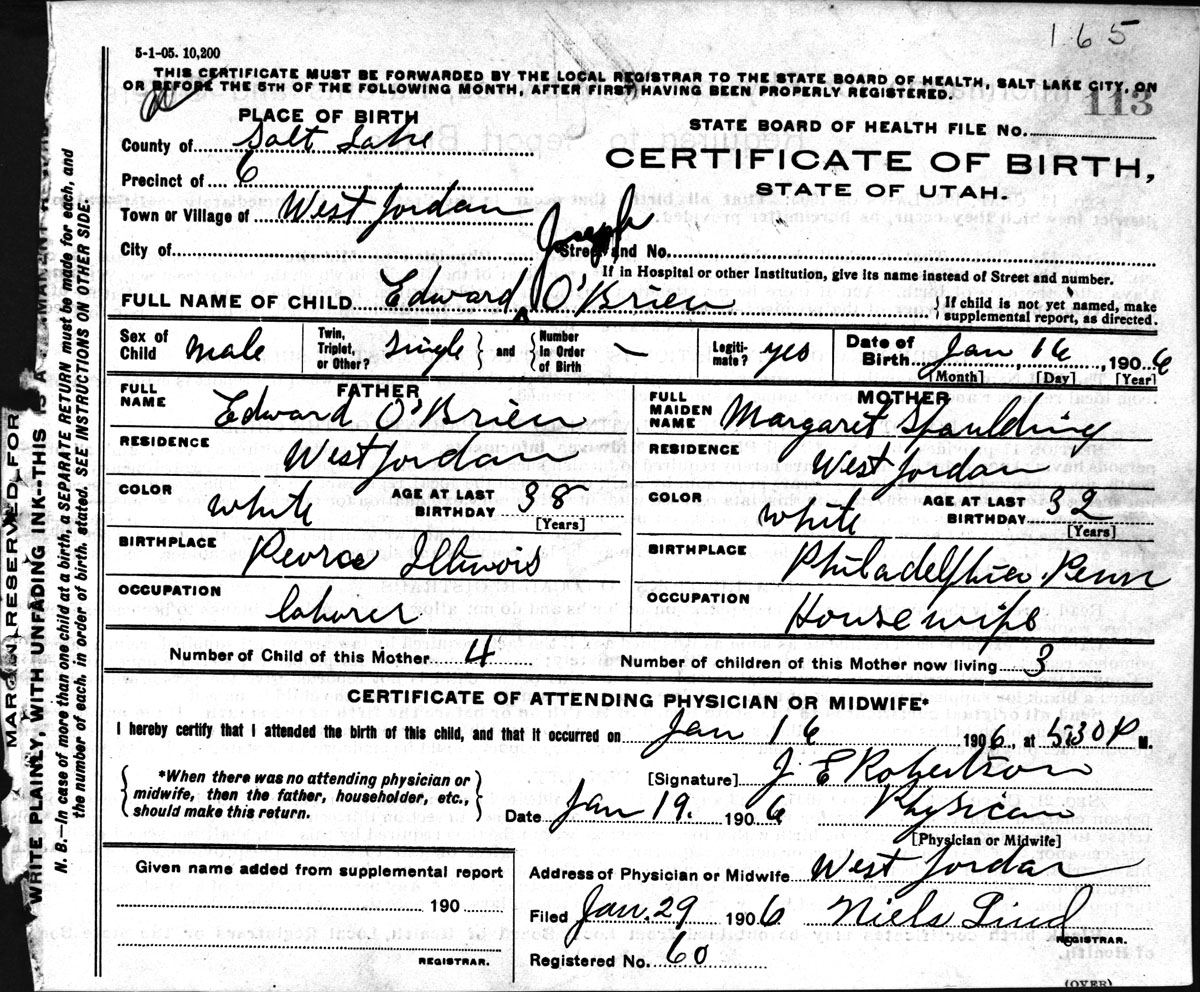 165
5-1-05. 10,200
THIS CERTIFICATE MUST BE FORWARDED BY THE LOCAL REGISTRAR TO THE STATE BOARD OF HEALTH, SALT LAKE CITY, ON
OR BEFORE THE 5TH OF THE FOLLOWING MONTH, AFTER FIRST HAVING BEEN PROPERLY REGISTERED.
113
PLACE OF BIRTH
STATE BOARD OF HEALTH FILE No.
County of Salt Lake
CERTIFICATE OF BIRTH,
Precinct of 6
STATE OF UTAH.
Town or Village of West Jordan
City of Street and No.
If in Hospital or other Institution, give its name instead of Street and number.
Joseph
FULL NAME OF CHILD Edward ^ O'Brien { If child is not yet named, make
supplemental report, as directed.
Sex of Child male Twin, Triplet, or Other? Single } and { Number In Order of Birth — Legiti-mate? yes Date of Birth Jan 16, 1906
[Month] [Day] [Year]
FATHER
FULL NAME Edward O'Brien
RESIDENCE West Jordan
COLOR white AGE AT LAST BIRTHDAY 38
[Years]
BIRTHPLACE Illinois
OCCUPATION laborer
MOTHER
FULL MAIDEN NAME Margaret Spaulding
RESIDENCE West Jordan
COLOR white AGE AT LAST BIRTHDAY 32
[Years]
BIRTHPLACE Philadelphia. Penn
OCCUPATION Housewife
Number of Child of this Mother 4 Number of children of this Mother now living 3
CERTIFICATE OF ATTENDING PHYSICIAN OR MIDWIFE*
I hereby certify that I attended the birth of this child, and that it occurred on Jan 16 1906, at 5.30 P M.
{ *When there was no attending physician or
midwife, then the father, householder, etc.,
should make this return. }
[Signature] J E Robertson
Date Jan 19. 1906 Physican
[Physician or Midwife]
Given name added from supplemental report
190
REGISTRAR.
Address of Physician or Midwife West Jordan
Filed Jan. 29 1906 Niels Lind
REGISTRAR.
Registered No. 60
(OVER)
MARGIN RESERVED FOR
WRITE PLAINLY, WITH UNFADING INK--THIS IS A
N. B.—In case of more than one child at a birth, a SEPARATE RETURN must be made for each, and
the number of each, in order of birth, stated. SEE INSTRUCTIONS ON OTHER SIDE.